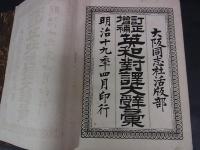 大阪同志社活版部
訂正
増補
英和對譯大辭彙
明治十九年四月印行